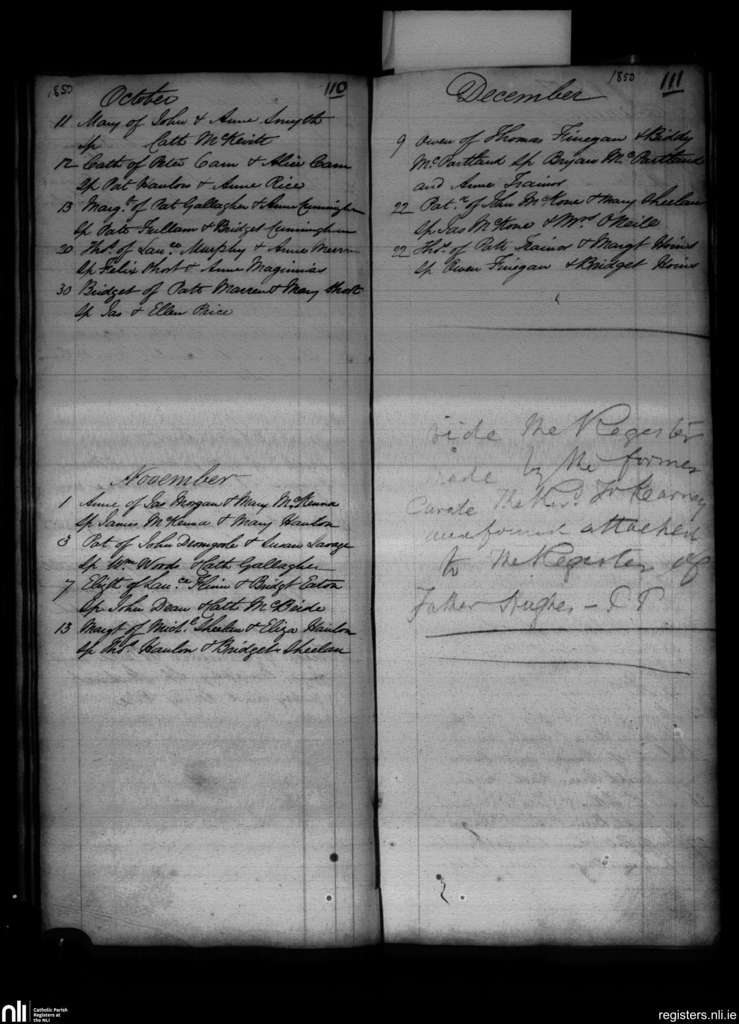 1850 October 110
11 Mary of John & Anne Smyth
sp Cath McKeith
12 Cath of Peter Cam & Alice Cam
Sp Pat Hanlon & Anne Rice
13 Margt of Pat Gallagher & Anne Cunningham
Sp Patk Fullam & Bridget Cunningham
20 Thos of Laure Murphy & Anne
Sp Felix Short & Anne Maginnias
30 Bridget of Patk Marren & Mary Short
Sp Jas & Ellen Price
November
1 Anne of Jas Morgan & Mary McKenna
Sp James McKenna & Mary Hanlon
3 Pat of John Dromgole & Susan Savage
Sp Wm Woods & Cath Gallagher
7 Elizth of Laure & Bridgt Eaton
Sp John Dean & Cath McBride
13 Margt of Michl Sheelan & Eliza Hanlon
Sp Thos Hanlon & Bridget Sheelan
1850 111
December
9 Owen of Thomas Finegan & Biddy
McPartland Sp Bryan McPartland
and Anne Trainor
22 Patk of John McKone & Mary Sheelan
Sp Jas McKone & Mrs O'Neile
22 Thos of Patk Trainor & Margt Hoins
Sp Owen Finegan & Bridget Hoins
vide the Register
made by the former
Curate the Revd Fr Kearney
and found attached
to the Register of
Father Hughes - P P
nli Catholic Parish
Registers at
the NLI
registers.nli.ie